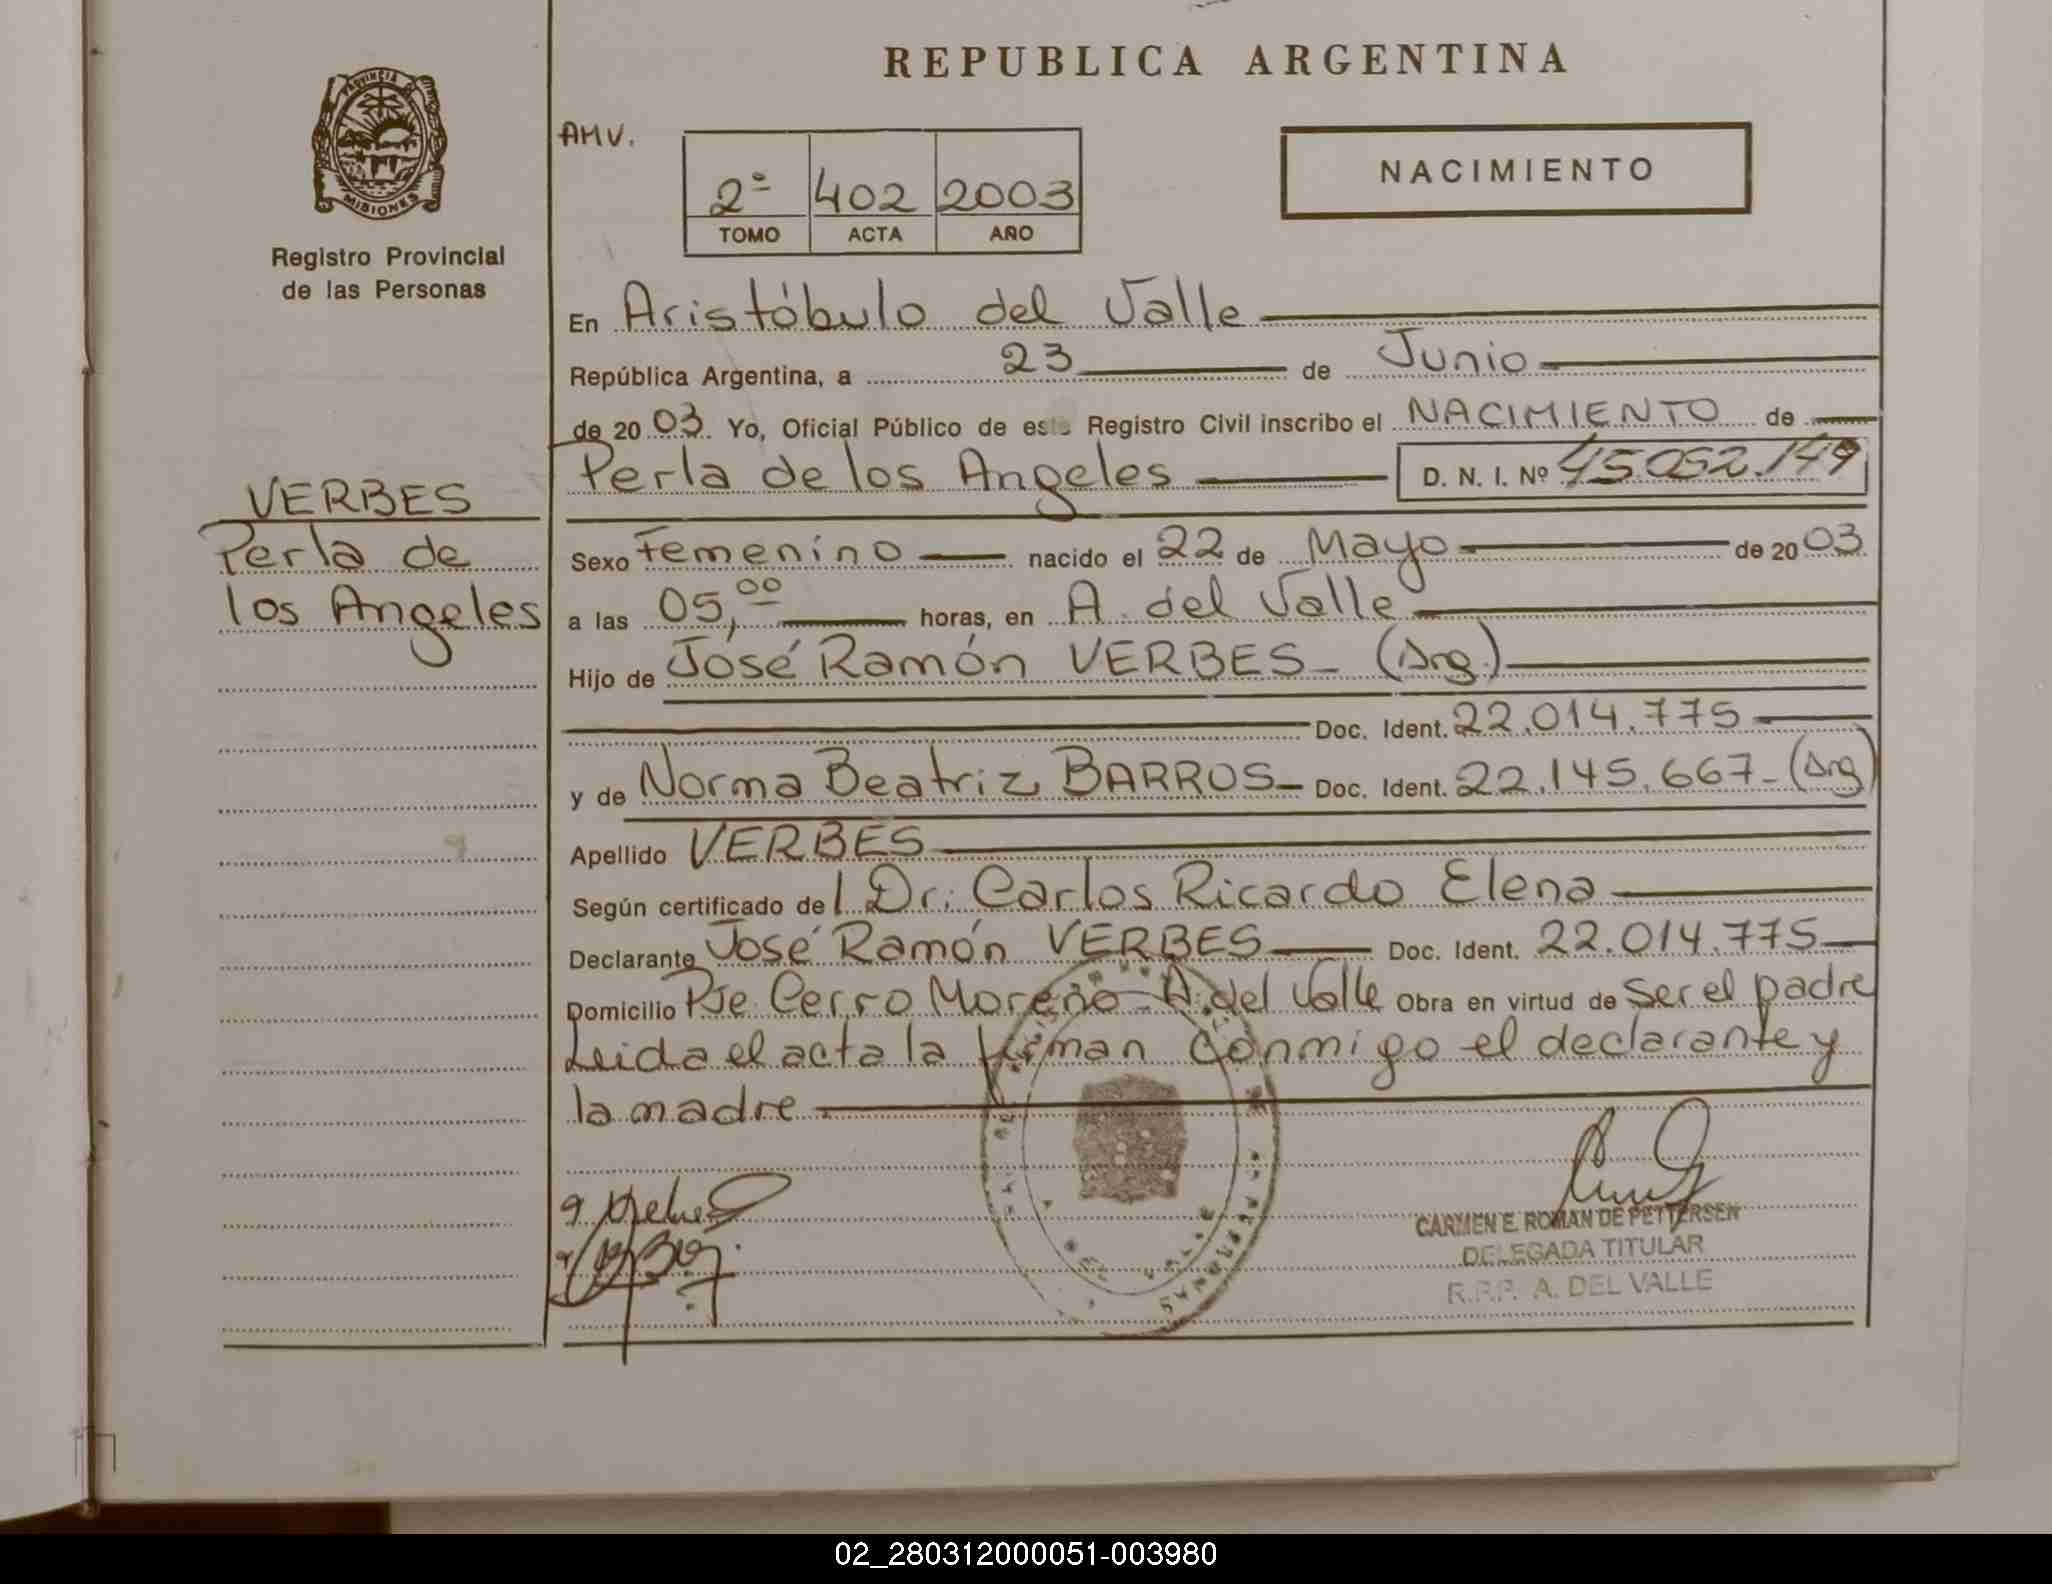 REPUBLICA ARGENTINA
PROVINCIA
MISIONES
Registro Provincial
de las Personas
AMV.
2º 402 2003
TOMO ACTA AÑO
NACIMIENTO
En Aristóbulo del Valle
República Argentina, a 23 de Junio
de 2003. Yo, Oficial Público de este Registro Civil inscribo el NACIMIENTO de
Perla de los Angeles D. N. I. Nº 45.052.149
VERBES
Perla de
los Angeles
Sexo Femenino nacido el 22 de Mayo de 2003
a las 05,00 horas, en A. del Valle
Hijo de José Ramón VERBES - (Arg.)
Doc. Ident. 22.014.775
y de Norma Beatriz BARROS - Doc. Ident. 22.145.667 - (Arg)
Apellido VERBES
Según certificado del Dr. Carlos Ricardo Elena
Declarante José Ramón VERBES Doc. Ident. 22.014.775
Domicilio Pje. Cerro Moreno - A. del Valle Obra en virtud de ser el padre
Leida el acta la firman conmigo el declarante y
la madre
CARMEN E. ROMAN DE PETTERSEN
DELEGADA TITULAR
R.P.P. A. DEL VALLE
02_280312000051-003980